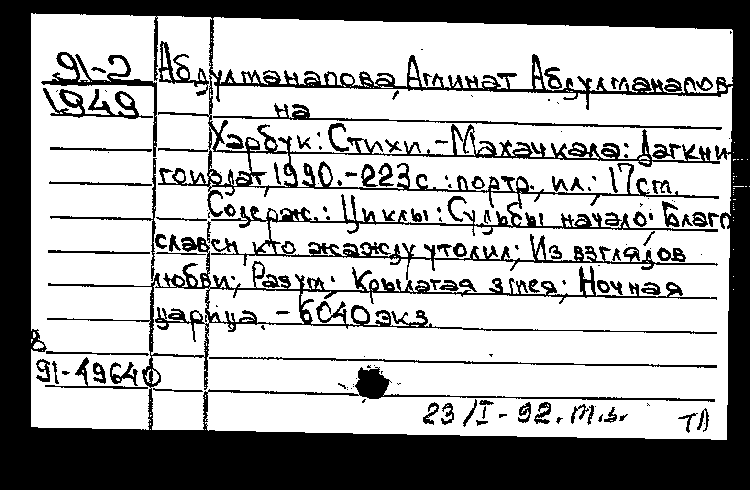 91-2
1949
Абдулманапова, Аминат Абдулманапов-
на
Харбук: Стихи. - Махачкала: Дагкни-
гоиздат, 1990. - 223 с. : портр., ил.; 17 см.
Содерж.: Циклы: Судьбы начало; Благо
славен, кто жажду утолил; Из взглядов
любви; Разум; Крылатая змея; Ночная
царица. - 6040 экз.
8
91-49640
23/I - 92. м.в. ТА